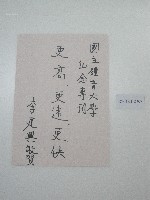 國立體育大學
紀念專刊
更高 更遠 更快
李光興敬賀